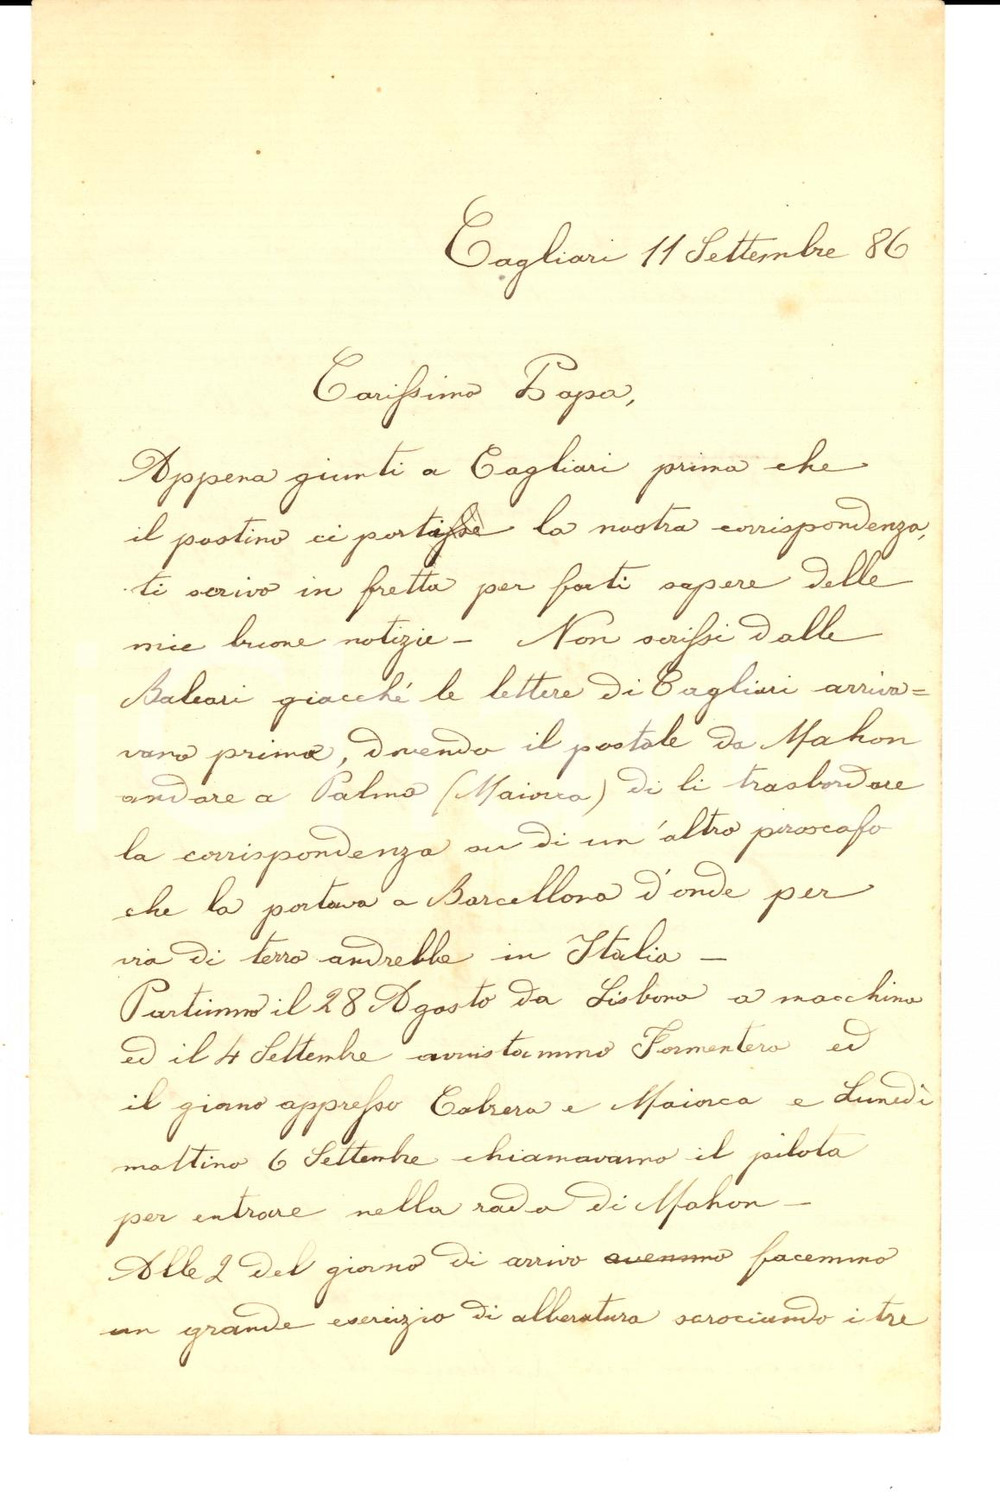 Cagliari 11 Settembre 86
Carissimo Papa,
Appena giunti a Cagliari prima che
il postino ci portasse la nostra corrispondenza,
ti scrivo in fretta per farti sapere delle
mie buone notizie - Non scrissi dalle
Baleari giacché le lettere di Cagliari arriva=
vano prima, dovendo il postale da Mahon
andare a Palma (Maiorca) di li trasbordare
la corrispondenza su di un'altro piroscafo
che la portava a Barcellona d'onde per
via di terra andrebbe in Italia -
Partimmo il 28 Agosto da Lisbona a macchina
ed il 4 Settembre avvistammo Formentera ed
il giorno appresso Cabrera e Maiorca e Lunedì
mattino 6 Settembre chiamavamo il pilota
per entrare nella rada di Mahon -
Alle 2 del giorno di arrivo avemmo facemmo
un grande esercizio di alberatura scrociando i tre